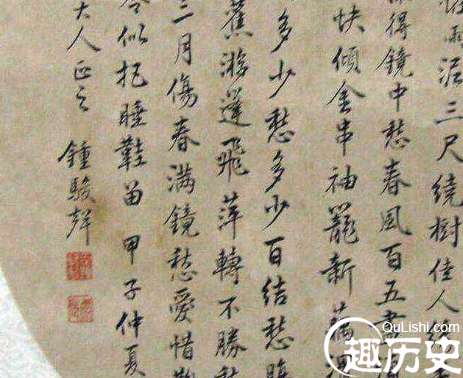 雨泥三尺繞樹佳人
得鏡中愁春風百五
快傾金串袖籠新
多少愁多少百結愁
蕉游蓬飛萍轉不勝
三月傷春滿鏡愁愛惜
令似抱睡鞋留 甲子仲夏
大人正之 鍾駿聲
QuLishi.com
趣历史